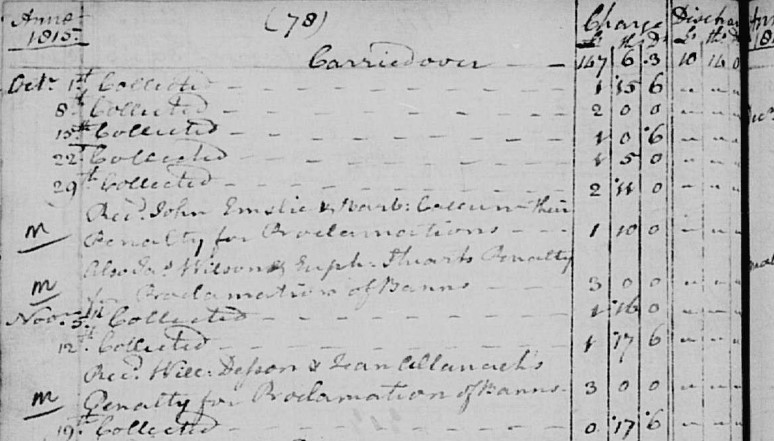 Anno (78) Charge Discha
1815. £ Sh D £ Sh D
Carried over — — 147 6 3 10 14 0
Octr. 1st Collected — — — 1 15 6
8th Collected — — — 2 0 0
15th Collected — — — 1 0 6
22d Collected — — — 1 5 0
29th Collected — — — 2 11 0
Recd. John Emslie & Barb: Callum their
m Penalty for Proclamations — — — 1 10 0
Also Jas Wilson & Euph. Stuarts Penalty
m for Proclamation of Banns — — 3 0 0
Novr. 5th Collected — — — 1 16 0
12th Collected — — — 1 17 6
Recd. Will: & Jean Allanach's
m Penalty for Proclamation of Banns 3 0 0
19th Collected — — — 0 17 6